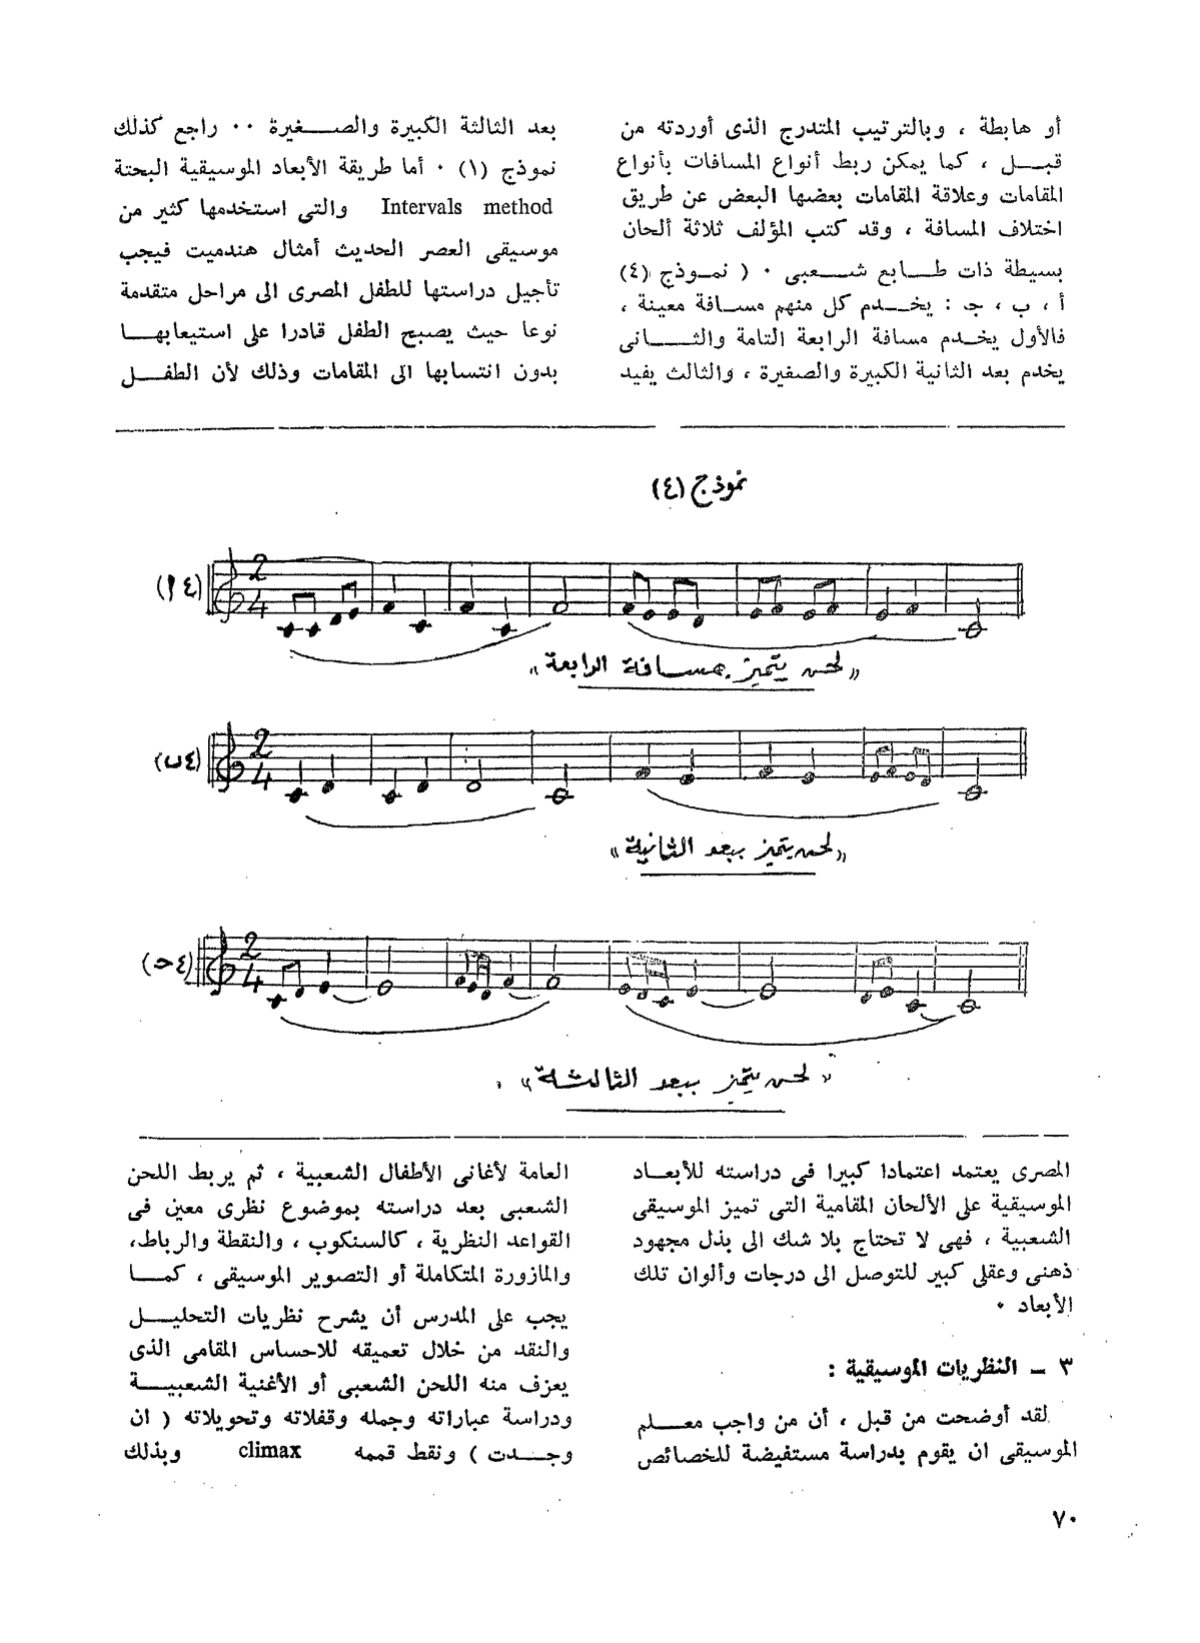 أو هابطة ، وبالترتيب المتدرج الذى أوردته من
قبـــل ، كما يمكن ربط أنواع المسافات بأنواع
المقامات وعلاقة المقامات بعضها البعض عن طريق
اختلاف المسافة ، وقد كتب المؤلف ثلاثة ألحان
بسيطة ذات طـــابع شـــعبى ٠ ( نمـوذج (٤)
أ ، ب ، ج : يخـــدم كل منهم مسـافة معينة ،
فالأول يخـدم مسافة الرابعة التامة والثـــــانى
يخدم بعد الثانية الكبيرة والصغيرة ، والثالث يفيد
بعد الثالثة الكبيرة والصـــغيرة ٠٠ راجع كذلك
نموذج (١) ٠ أما طريقة الأبعاد الموسيقية البحتة
Intervals method والتى استخدمها كثير من
موسيقى العصر الحديث أمثال هندميت فيجب
تأجيل دراستها للطفل المصرى الى مراحل متقدمة
نوعا حيث يصبح الطفل قادرا على استيعابهـــا
بدون انتسابها الى المقامات وذلك لأن الطفـــل
نموذج (٤)
(٤ أ)
2
4
« لحن يتميز بمسافة الرابعة »
(٤ ب)
2
4
« لحن يتميز ببعد الثانية »
(٤ ح)
2
4
« لحن يتميز ببعد الثالثة »
المصرى يعتمد اعتمادا كبيرا فى دراسته للأبعـــاد
الموسيقية على الألحان المقامية التى تميز الموسيقى
الشعبية ، فهى لا تحتاج بلا شك الى بذل مجهود
ذهنى وعقلى كبير للتوصل الى درجات وألوان تلك
الأبعاد ٠
٣ ـ النظريات الموسيقية :
لقد أوضحت من قبل ، أن من واجب معـــلم
الموسيقى ان يقوم بدراسة مستفيضة للخصائص
العامة لأغانى الأطفال الشعبية ، ثم يربط اللحن
الشعبى بعد دراسته بموضوع نظرى معين فى
القواعد النظرية ، كالسنكوب ، والنقطة والرباط،
والمازورة المتكاملة أو التصوير الموسيقى ، كمـــا
يجب على المدرس أن يشرح نظريات التحليـــل
والنقد من خلال تعميقه للاحساس المقامى الذى
يعزف منه اللحن الشعبى أو الأغنية الشعبيـــة
ودراسة عباراته وجمله وقفلاته وتحويلاته ( ان
وجـــدت ) ونقط قممه climax وبذلك
٧٠